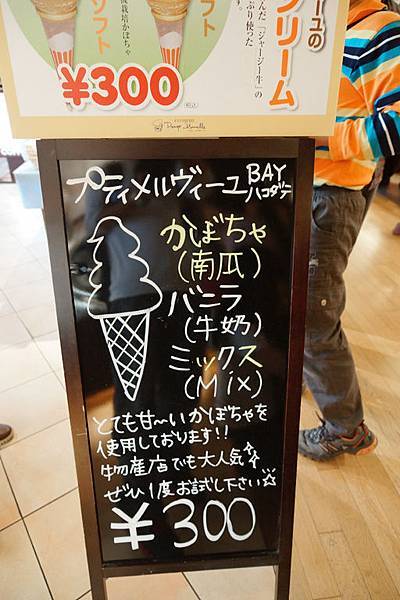 ユの
クリーム
んだ「ジャージー牛」の
ぷり使った
ソフト
フト
栽培かぼちゃ
¥300
プティメルヴィーユ BAY
ハコダテ
かぼちゃ
(南瓜)
バニラ
(牛奶)
ミックス
(Mix)
とても甘〜いかぼちゃを
使用しております!!
物産店でも大人気☆
ぜひ1度お試し下さい☆
¥300